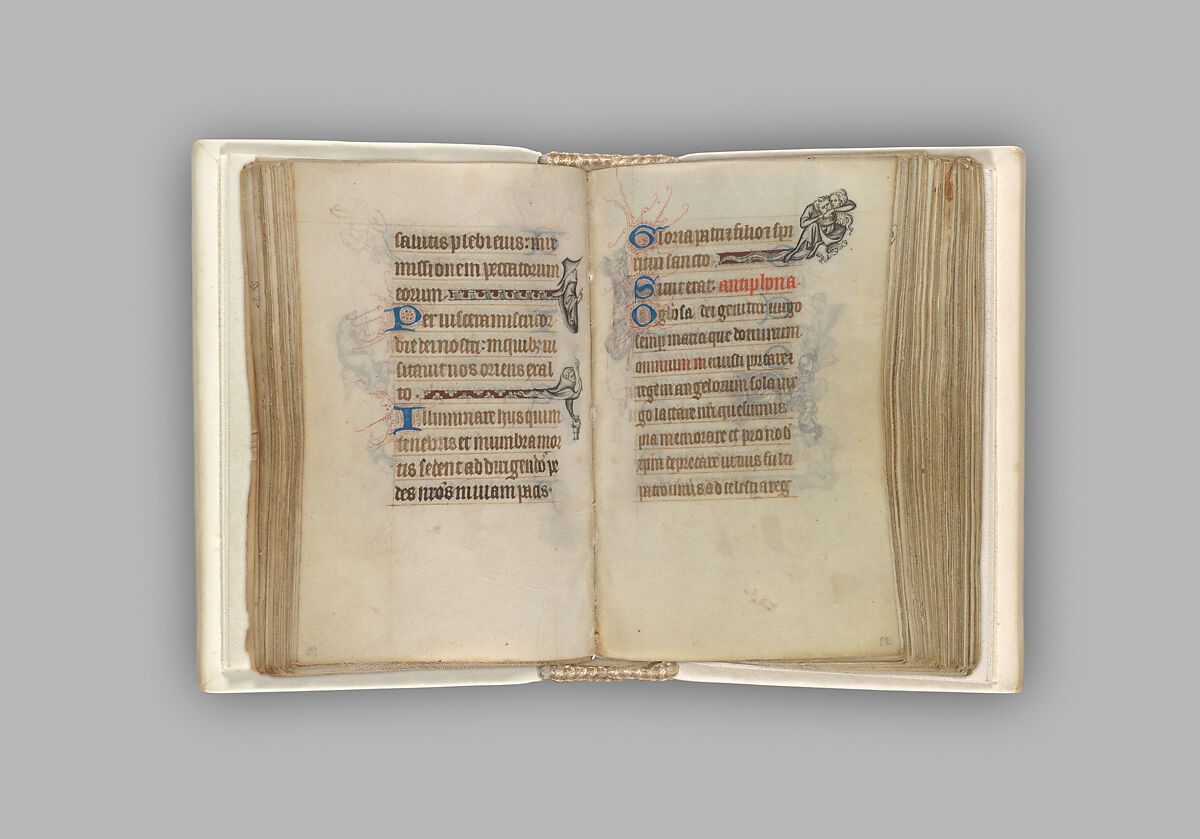 salutis plebi eius: in re
missionem peccatorum
eorum
Per viscera misericor
die dei nostri: in quibz vi
sitavit nos oriens ex al
to
Illuminare hiis qui in
tenebris et in umbra mor
tis sedent ad dirigendos pe
des nros in viam pacis.
Gloria patri 7 filio 7 spi
ritui sancto
Sicut erat. antiphona.
O gloosa dei genitrix virgo
semp maria que dominum
omnium meruisti portare 7
regem angelorum sola vir
go lactare nri quesumus
pia memorare et pro nob
xpm deprecare ut tuis fulti
patrociniis ad celestia reg
12